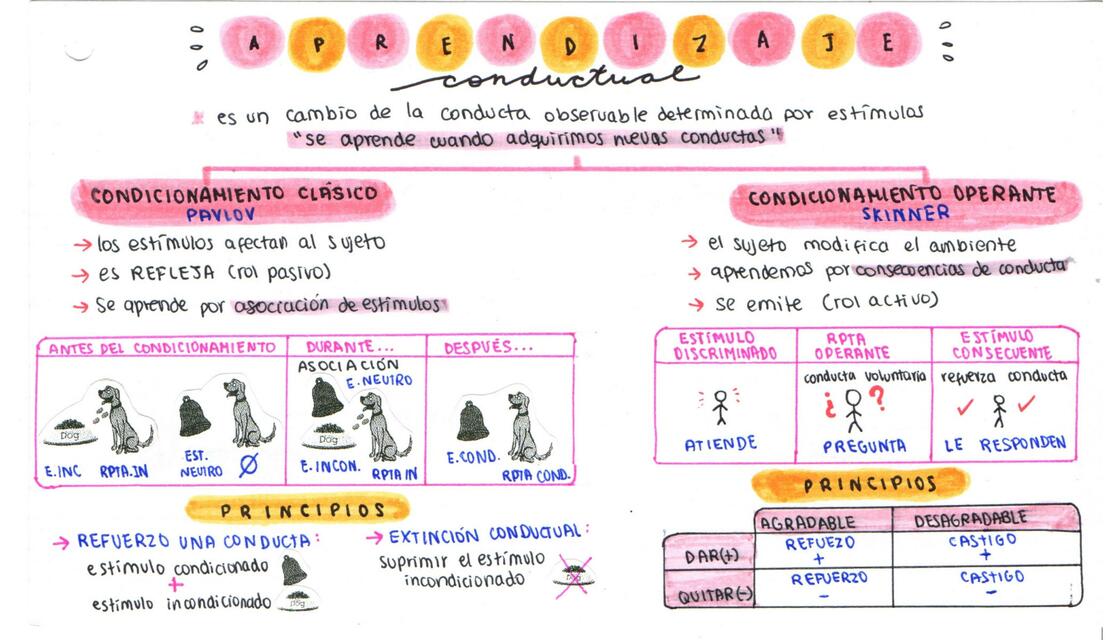 APRENDIZAJE
conductual
* es un cambio de la conducta observable determinado por estímulos
"se aprende cuando adquirimos nuevas conductas"
CONDICIONAMIENTO CLÁSICO
PAVLOV
→ los estímulos afectan al sujeto
→ es REFLEJA (rol pasivo)
→ Se aprende por asociación de estímulos
ANTES DEL CONDICIONAMIENTO
Dog
E.INC RPTA.IN
EST. NEUTRO Ø
DURANTE...
ASOCIACIÓN
E. NEUTRO
Dog
E. INCON. RPTA IN
DESPUÉS...
E.COND. RPTA COND.
PRINCIPIOS
→ REFUERZO UNA CONDUCTA:
estímulo condicionado
+
estímulo incondicionado
Dog
→ EXTINCIÓN CONDUCTUAL:
suprimir el estímulo
incondicionado
Dog
CONDICIONAMIENTO OPERANTE
SKINNER
→ el sujeto modifica el ambiente
→ aprendemos por consecuencias de conducta
→ se emite (rol activo)
ESTÍMULO
DISCRIMINADO
ATIENDE
RPTA
OPERANTE
conducta voluntaria
¿ ?
PREGUNTA
ESTÍMULO
CONSECUENTE
refuerza conducta
LE RESPONDEN
PRINCIPIOS
AGRADABLE DESAGRADABLE
DAR(+) REFUEZO + CASTIGO +
QUITAR(-) REFUERZO - CASTIGO -